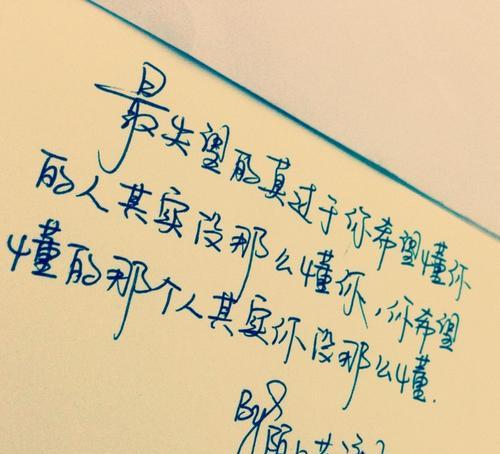 最失望的莫过于你希望懂你
的人其实没那么懂你，你希望
懂的那个人其实你没那么懂.
By